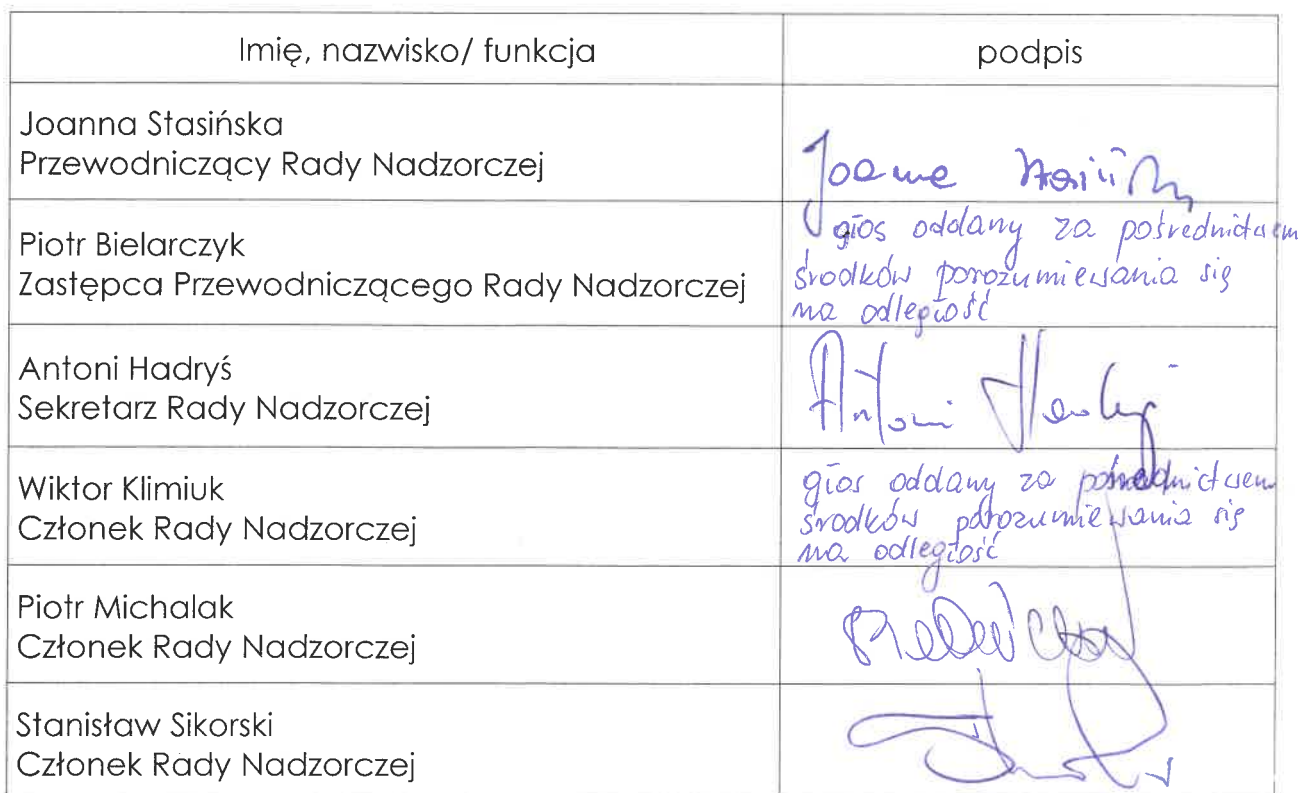 Imię, nazwisko/ funkcja
podpis
Joanna Stasińska
Przewodniczący Rady Nadzorczej
Joanna Stasińska
Piotr Bielarczyk
Zastępca Przewodniczącego Rady Nadzorczej
głos oddany za pośrednictwem
środków porozumiewania się
na odległość
Antoni Hadryś
Sekretarz Rady Nadzorczej
Antoni Hadryś
Wiktor Klimiuk
Członek Rady Nadzorczej
głos oddany za pośrednictwem
środków porozumiewania się
na odległość
Piotr Michalak
Członek Rady Nadzorczej
Stanisław Sikorski
Członek Rady Nadzorczej